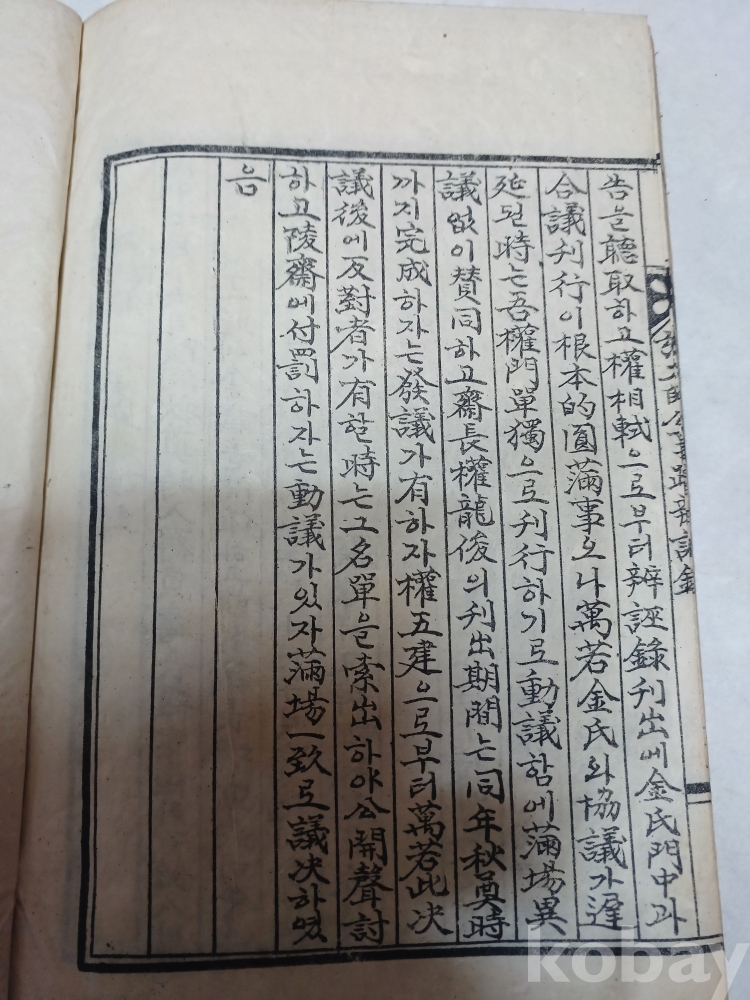 告을聽取하고權相軾으로부터辨誣錄刊出에金氏門中과
合議刊行이根本的圓滿事오나萬若金氏와協議가遲
延된時는吾權門單獨으로刊行하기로動議함에滿場異
議없이賛同하고齋長權龍俊의刊出期間는同年秋奠時
까지完成하자는發議가有하자權五建으로부터萬若此決
議後에反對者가有할時는그名單을索出하야公開聲討
하고陵齋에付罰하자는動議가있자滿場一致로議决하였
음
kobay